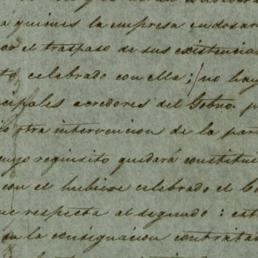 a quienes la empresa endosar
el traspaso de sus existencia
celebrado con ella; no hay
cipales acredores del Gobno. p
otra intervencion de la par
cuyo requisito quedará constitui
con el hubiese celebrado el
respecta al segundo: est
en la consignacion contratar